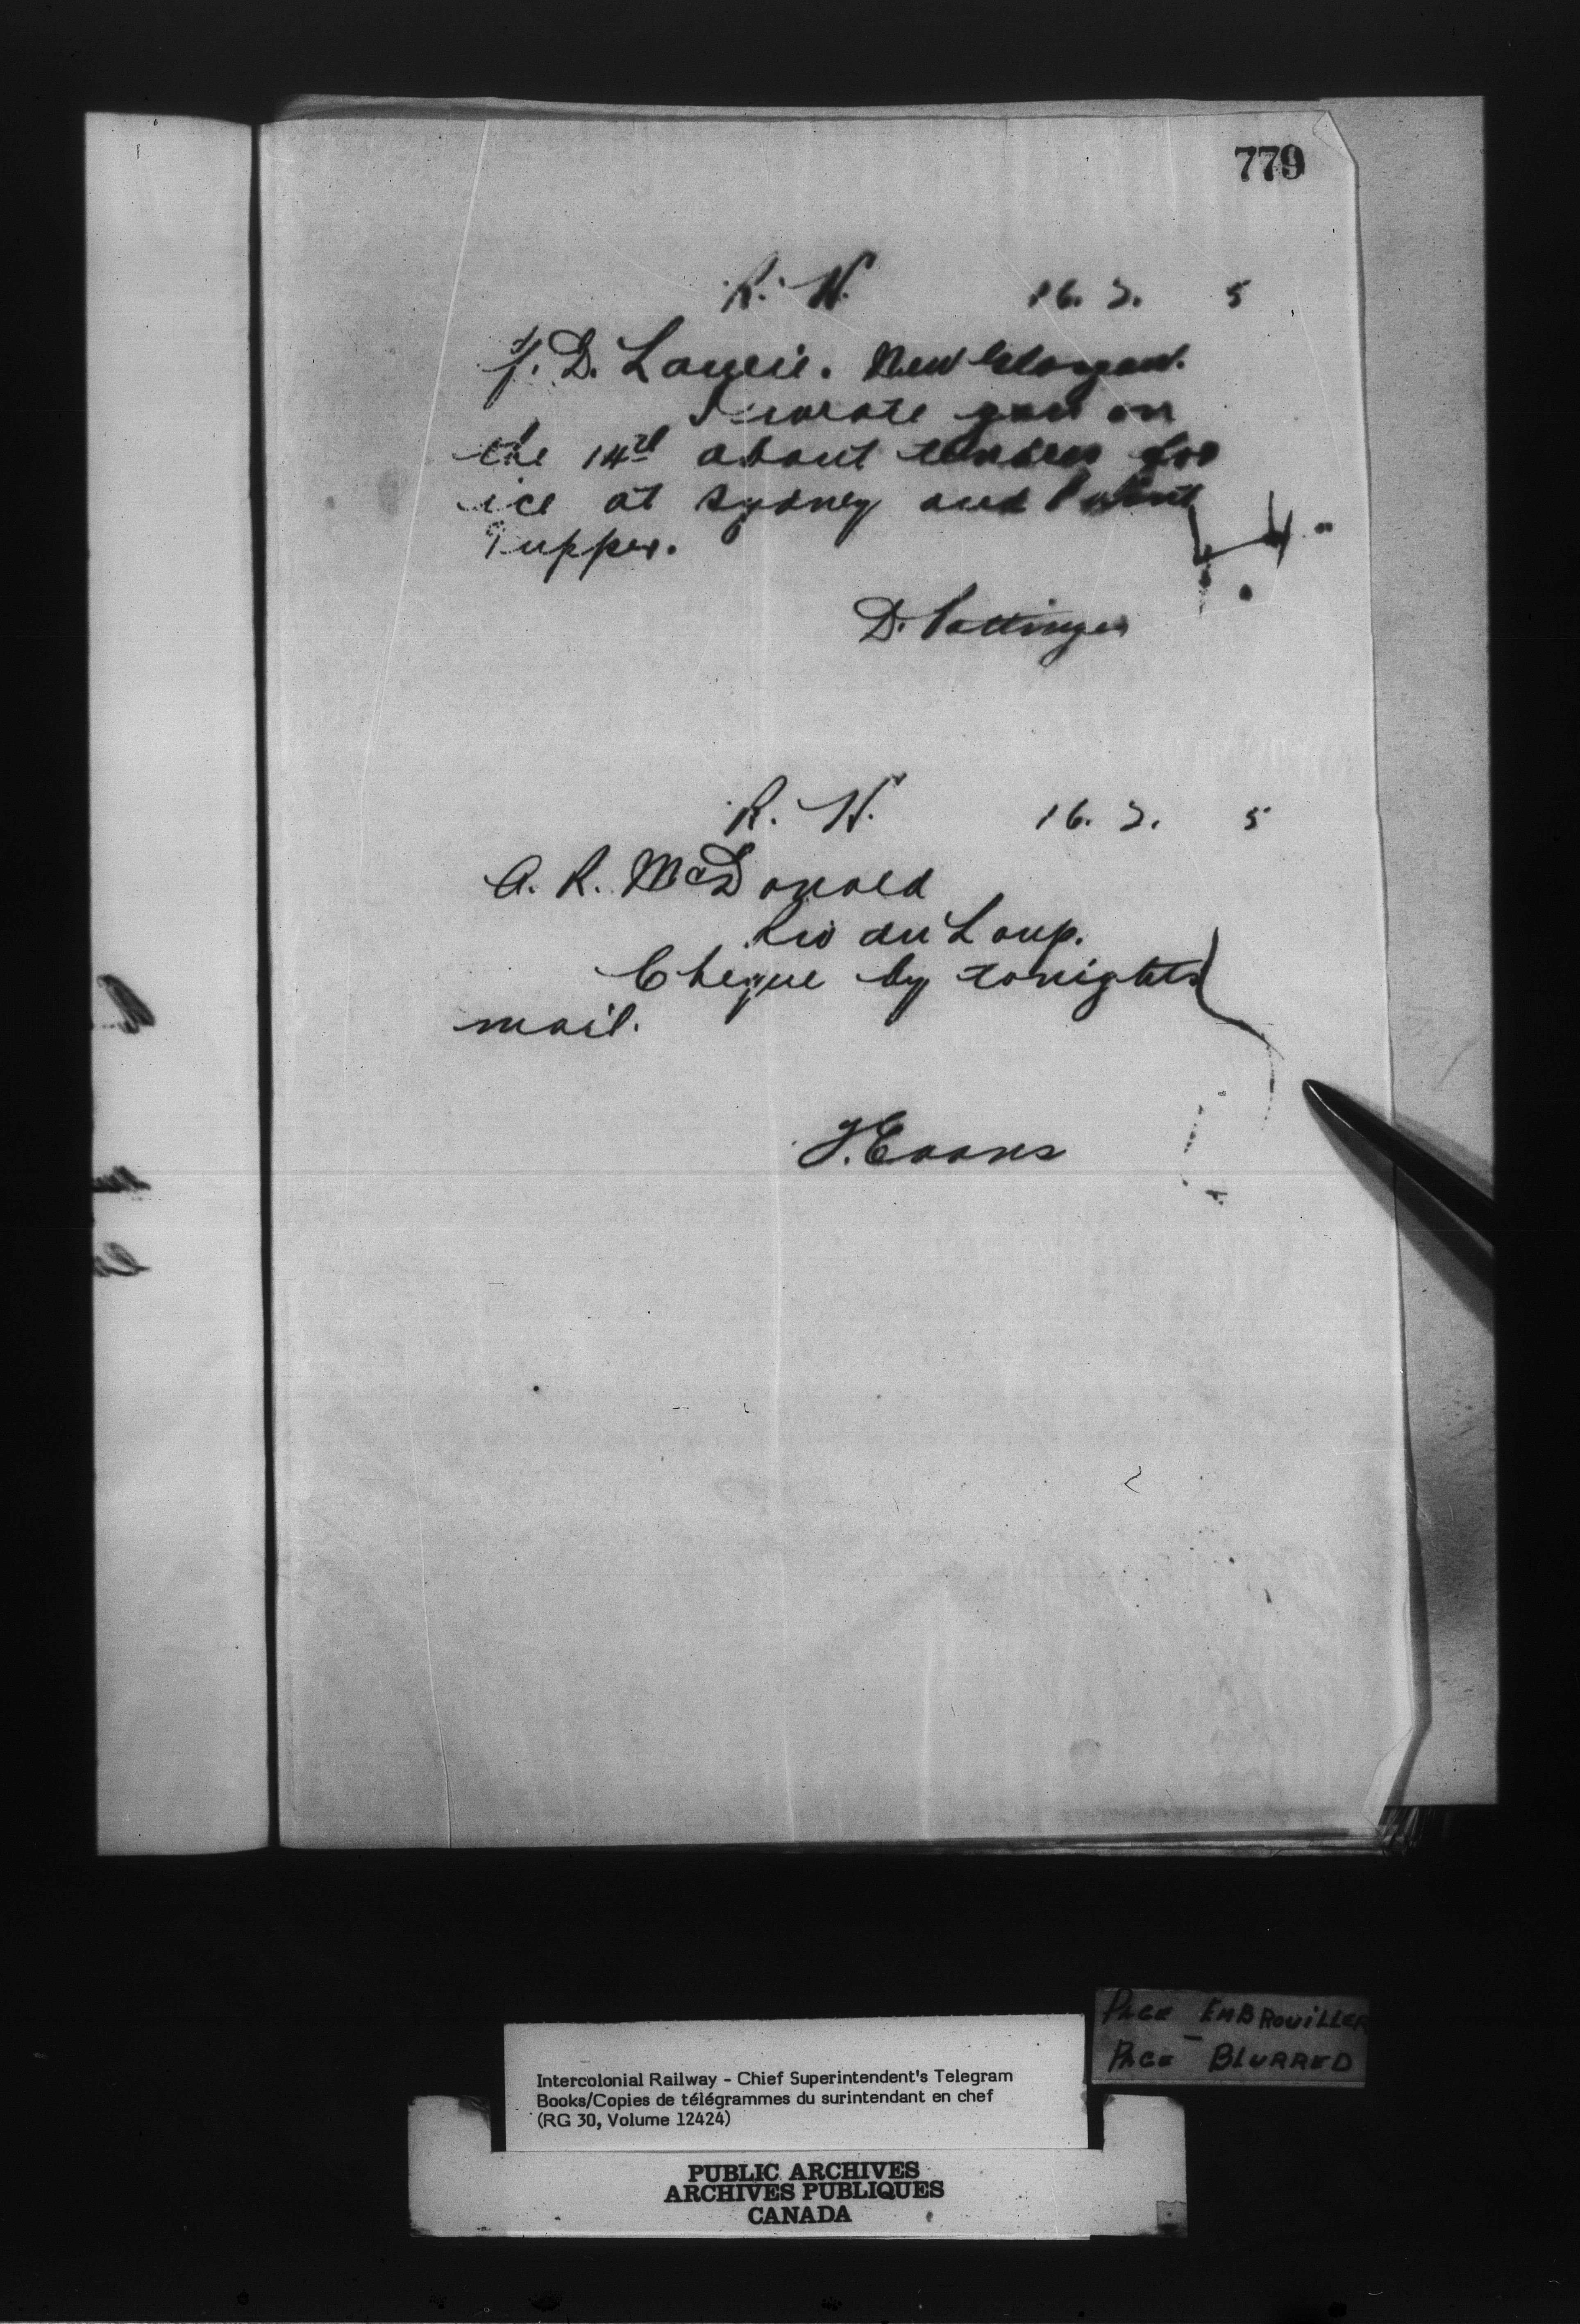 779
R. N. 16. 2. 5
J. D. Laurie. New Glasgow.
I wrote you on
the 14th about tenders for
ice at Sydney and Point
Tupper.
D. Pottinger
R. N. 16. 2. 5
A. R. McDonald
Riv du Loup.
Cheque by tonights
mail.
T. Evans
PAGE EMBROUILLER
PAGE BLURRED
Intercolonial Railway - Chief Superintendent's Telegram
Books/Copies de télégrammes du surintendant en chef
(RG 30, Volume 12424)
PUBLIC ARCHIVES
ARCHIVES PUBLIQUES
CANADA